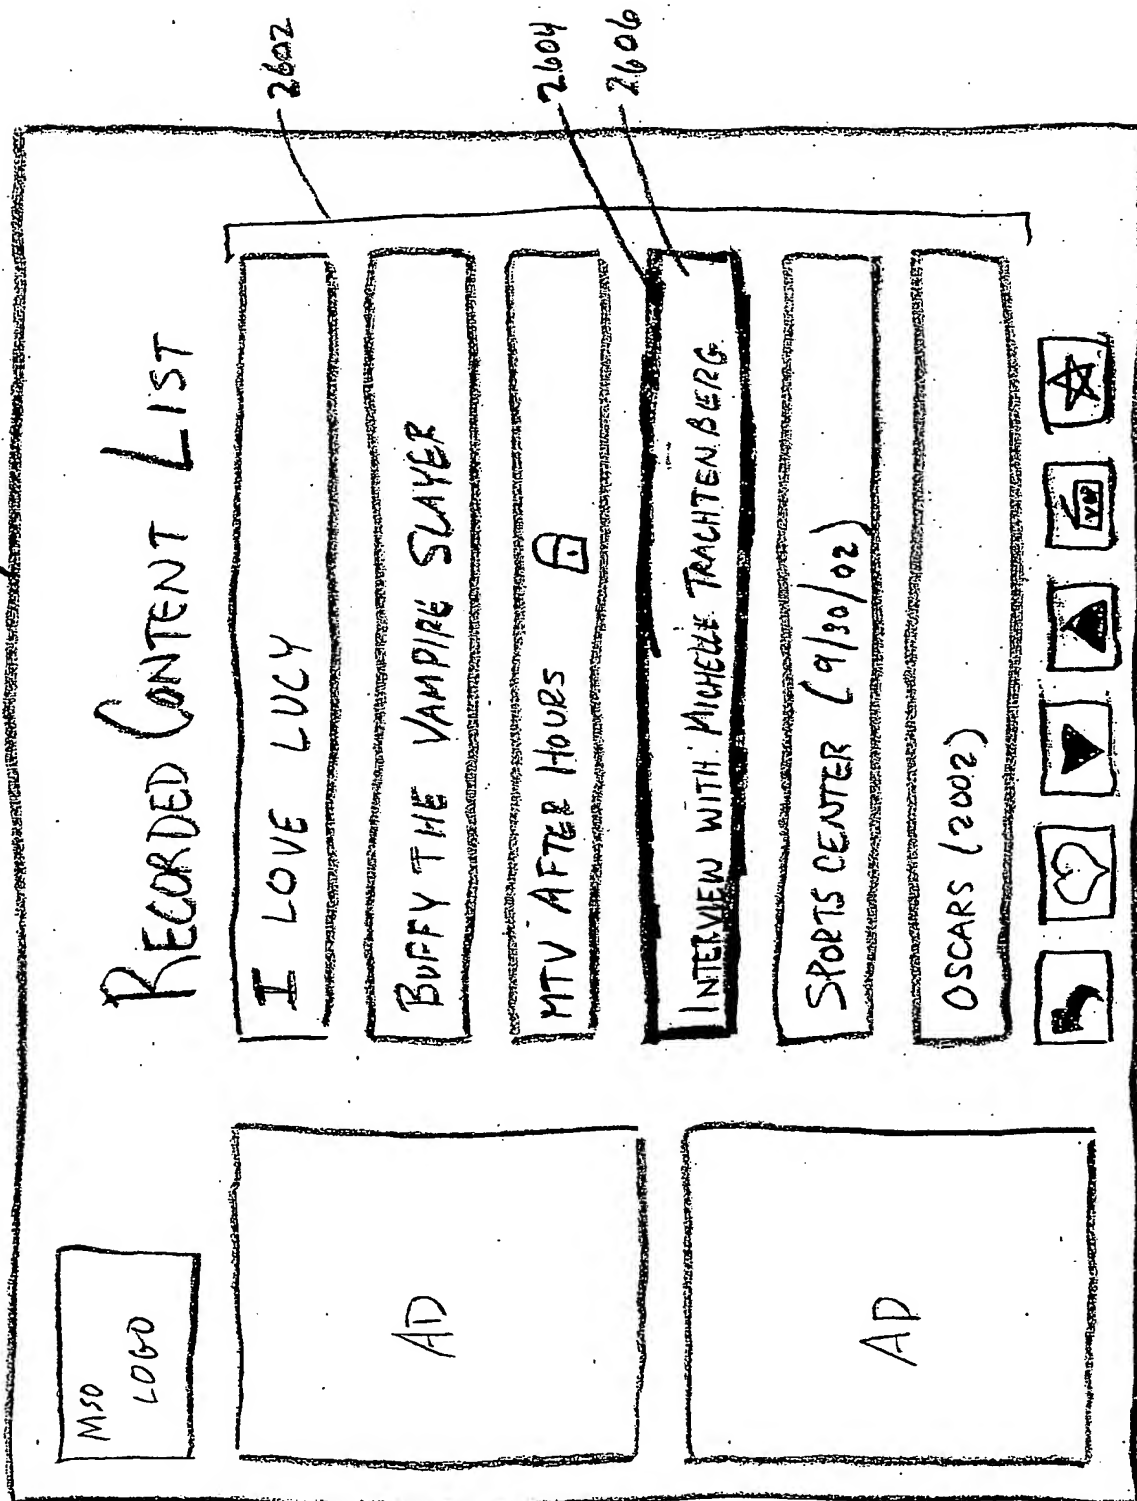 MSO
LOGO
RECORDED CONTENT LIST
AD
AD
I LOVE LUCY
BUFFY THE VAMPIRE SLAYER
MTV AFTER HOURS
INTERVIEW WITH MICHELLE TRACHTENBERG
SPORTS CENTER (9/30/02)
OSCARS (2002)
2602
2604
2606